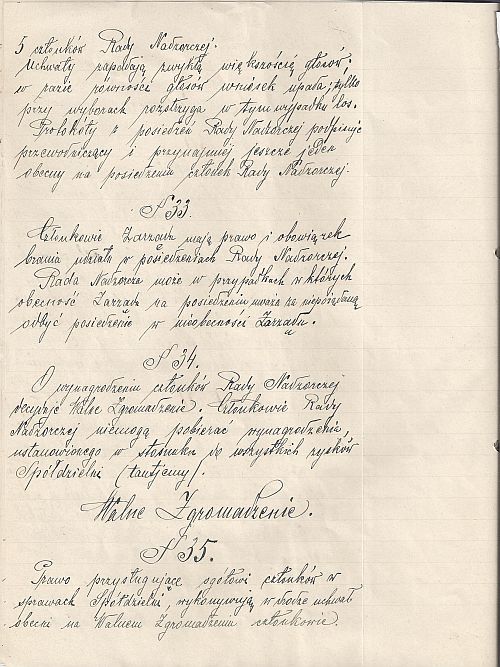 5 członków Rady Nadzorczej.
Uchwały zapadają zwykłą większością głosów:
w razie równości głosów wniosek upada; tylko
przy wyborach rozstrzyga w tym wypadku los.
Protokóły z posiedzeń Rady Nadzorczej podpisuje
przewodniczący i przynajmniej jeszcze jeden
obecny na posiedzeniu członek Rady Nadzorczej.
§ 33.
Członkowie Zarządu mają prawo i obowiązek
brania udziału w posiedzeniach Rady Nadzorczej.
Rada Nadzorcza może w przypadkach w których
obecność Zarządu na posiedzeniu uważa za niepożądaną
odbyć posiedzenie w nieobecności Zarządu.
§ 34.
O wynagrodzeniu członków Rady Nadzorczej
decyduje Walne Zgromadzenie. Członkowie Rady
Nadzorczej niemogą pobierać wynagrodzenia
ustanowionego w stosunku do wszystkich zysków
Spółdzielni (tantjemy).
Walne Zgromadzenie.
§ 35.
Prawo przysługujące ogółowi członków w
sprawach Spółdzielni, wykonywują w drodze uchwał
obecni na Walnem Zgromadzeniu członkowie.